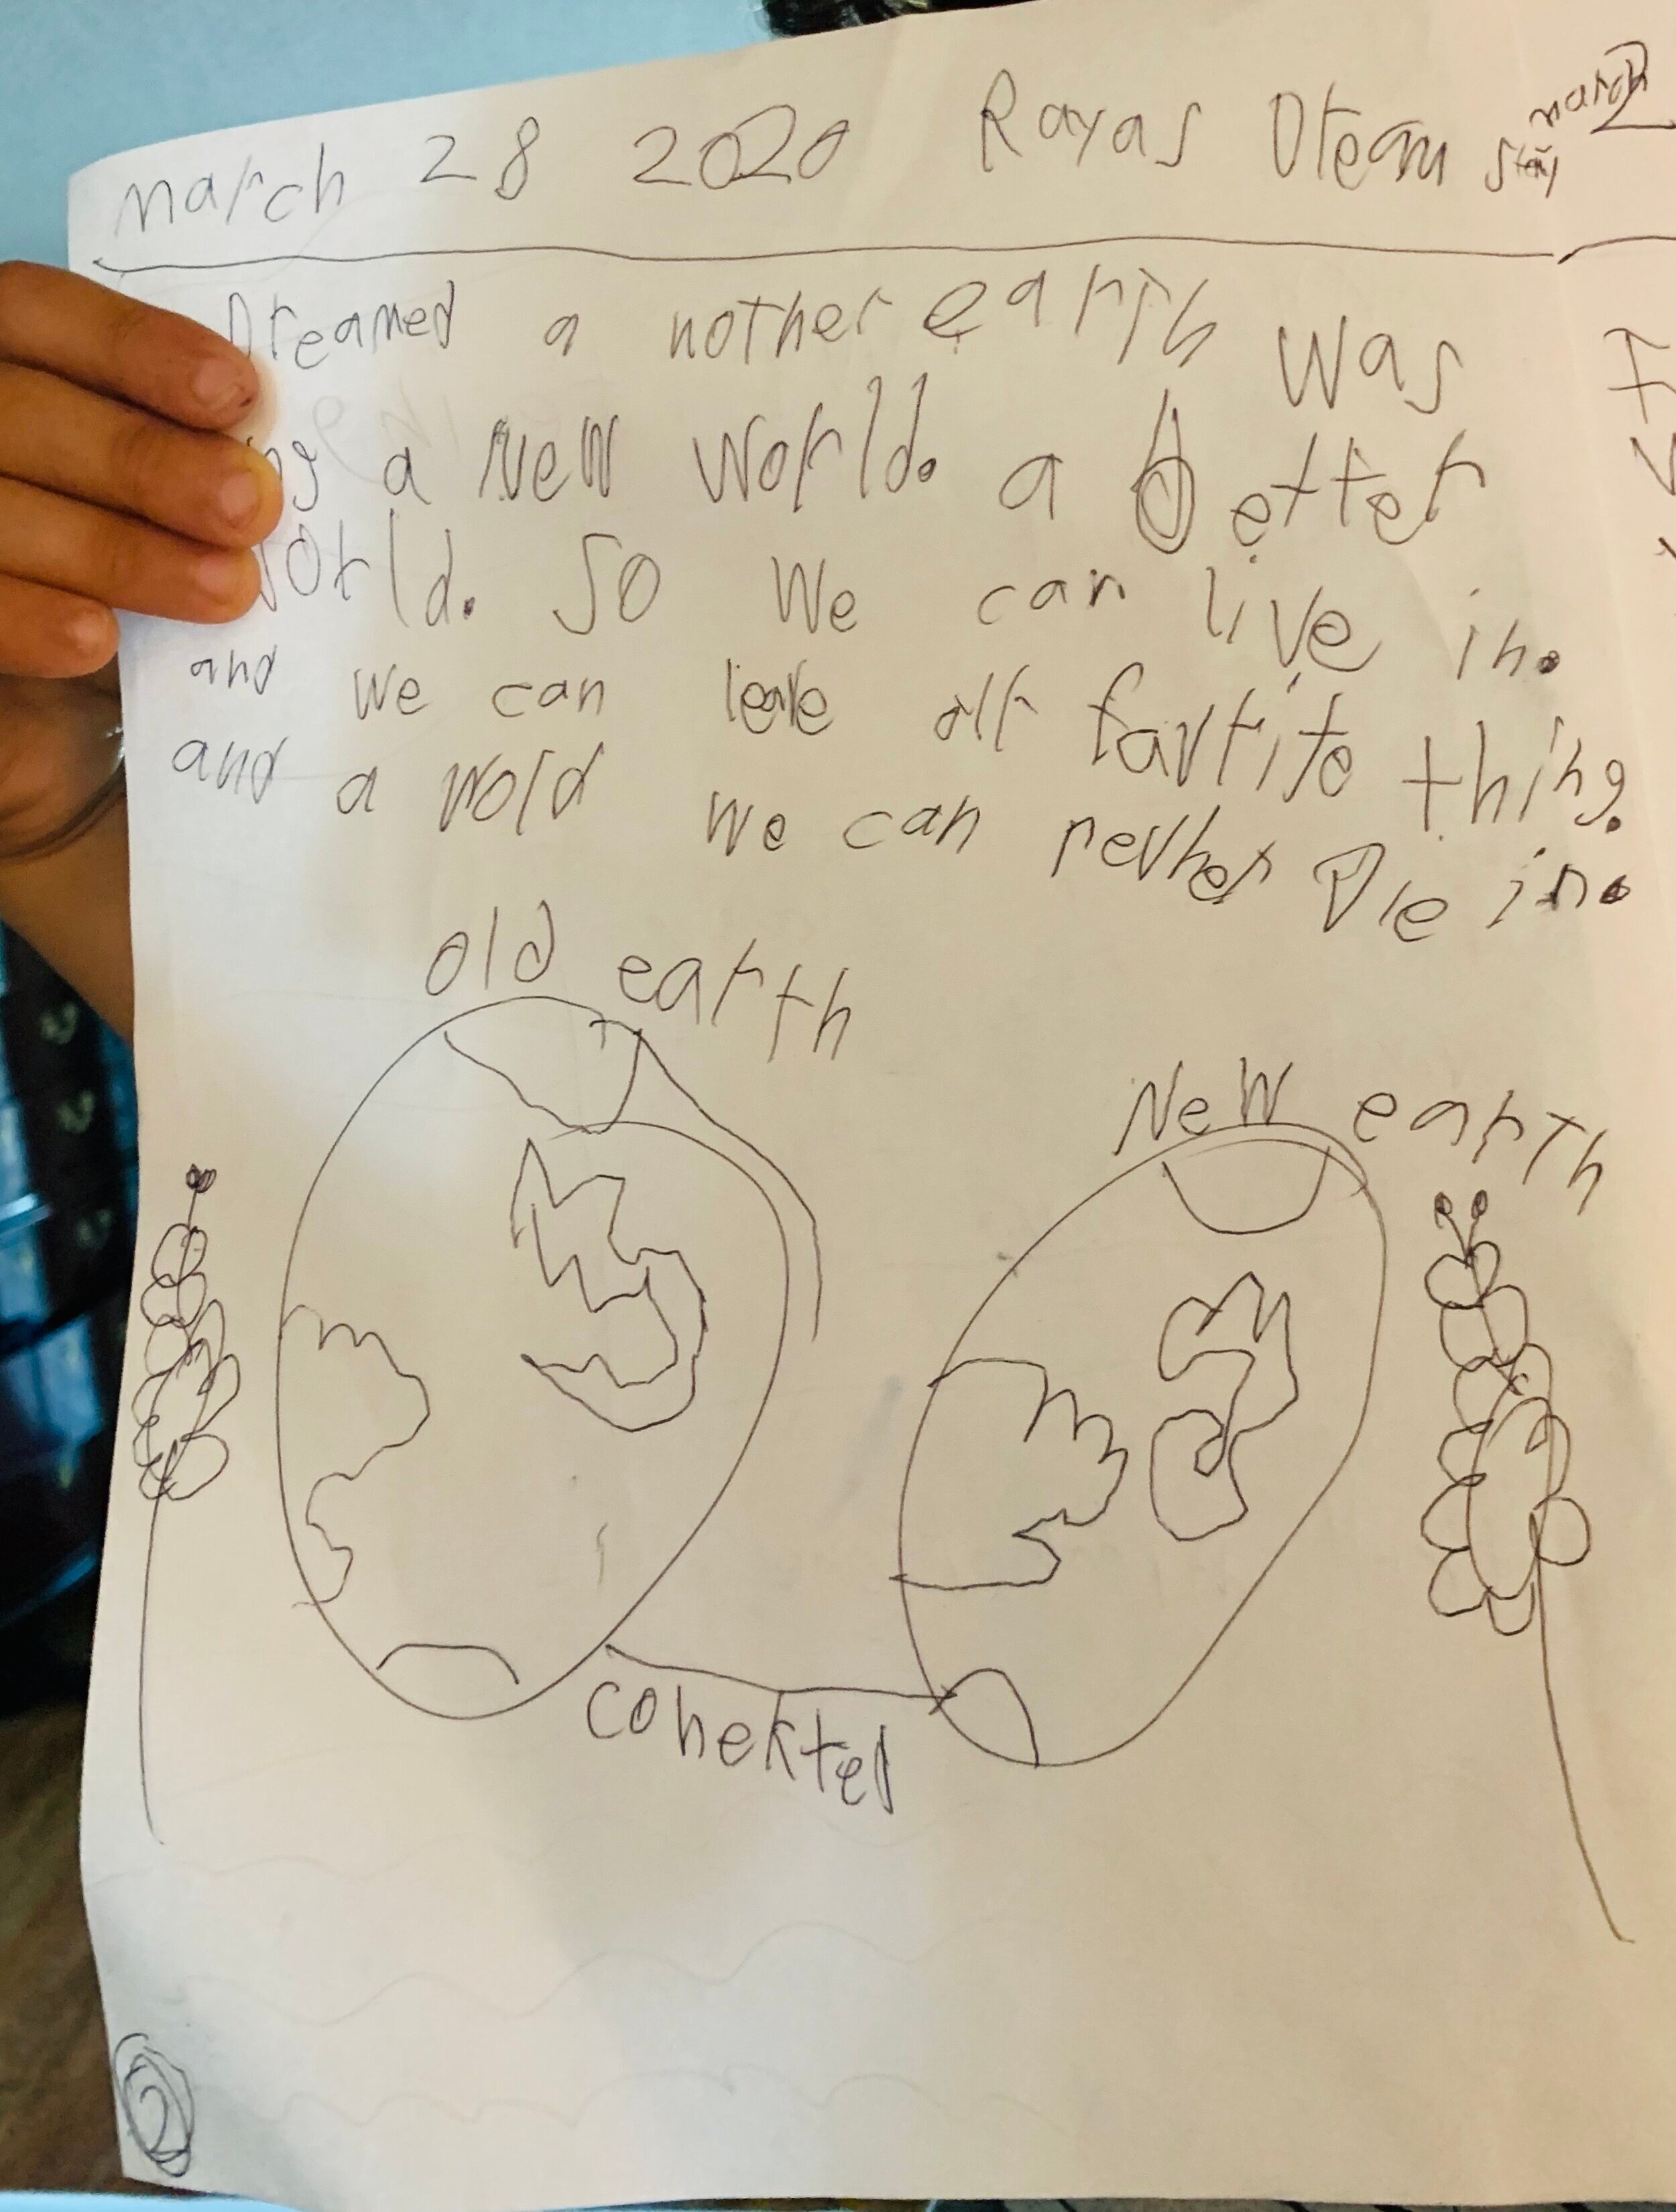 march 28 2020 Rayas Dream story march 2
Dreamed a nother earth was
ng a New World. a better
World. So We can live in.
and we can leave
favrite thing.
and a wold we can nevher Die in.
old earth
New earth
conekted
2